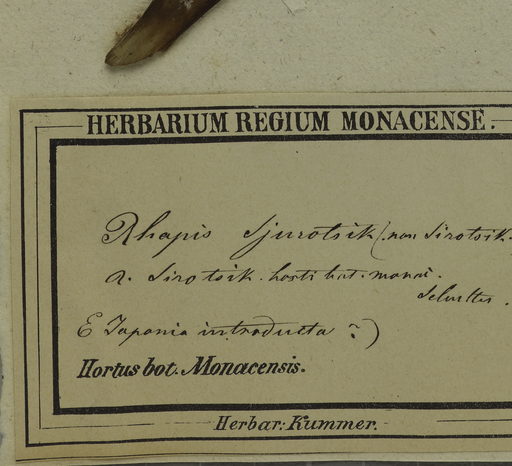 HERBARIUM REGIUM MONACENSE.
Rhapis Sjurotsik (non Sirotsik.
R. Sirotsik. horti bot. monac.
E Japonia introducta ?)
Hortus bot. Monacensis.
Herbar: Kummer.